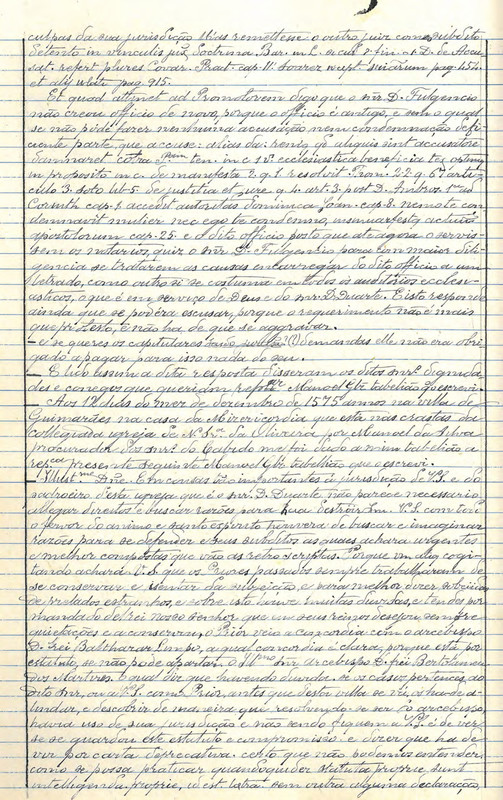 culpas da sua jurisdição. Mas remettese o outro juiz como subdito
detento in vinculis Doctrina Bar. in L. 2. fin. D. de Accu
sat. refert plures Covar. Pract. cap. 11 Soarez pag. 454
et aly pag. 915.
Et quod attynet ad Promotorem digo que o snr. D. Fulgencio
não creou officio de novo, porque o officio é antigo, e sem o qual
se não póde fazer nenhuma accusação nem condemnação defi
ciente parte, que accuse: alias da
damnaret ten. in c. 1 ecclesiastica beneficia
in proposito in c. de manifesta 2. q. 1. resolvit Thom. 2.2 q. 67 arti
culo 3. soto lib 5 de justitia et jure. q. 4. art 3. post D. Ambros.
Corinth cap. 1. accedit autoritas Dominica Joan. cap. 8. nemo te con
demnavit mulier nec ego te condemno,
apostolorum cap. 25. e o dito officio posto que até agora o servis
sem os notarios, quiz o snr. D. Fulgencio para com maior dili
gencia se tratarem as causas encarregar do dito officio a um
letrado, como outro si se costuma em todos os auditorios eccles
iasticos, o que é em serviço de Deus e do snr. D. Duarte. E isto responde
ainda que se podera escusar, porque o requerimento não é mais
que protesto, e não ha de que se aggravar.
— e se queres os capitulares (?) demandas elle não era obri
gado a pagar para isso nada do seu.
— E lido assim a dita resposta disseram os ditos snrs. dignida
des e conegos que queriam Manoel Glz tabelião o escrevi.
— Aos 12 dias do mez de dezembro de 1575 annos na villa de
Guimarães na casa da Misericordia que está nas crastas da
collegiada igreja de N. Sra. da Oliveira por Manoel da Silva
procurador dos snrs. do Cabido me foi dado a mim tabelião, a
presente seguinte Manoel Glz tabelião que o escrevi.
— Illust.mo Dne. Em cousas tão importantes á jurisdição de V. S. e do
padroeiro d'esta igreja que é o snr. D. Duarte, não parece necessario
allegar direitos e buscar razões para V. S. com todo
o fervor do animo e santo esposito houvera de buscar e imaginar
razões para se defender e seus subditos as quaes achara urgentes
e melhor compostas que vão as retro scriptas. Porque in alto cogi
tando achará V. S. que os Priores passados sempre trabalharam de
se conservar e isentar da subjeição, e para melhor dizer, sobjeição
de prelados estranhos, e sobre isto houve muitas duvidas, e tendo por
mandado d'el rei nosso senhor que em seus reinos desejou sempre
quietações e a conservam o Prior veio a concordia com o arcebispo
D. frei Balthazar Limpo, a qual concordia é clara, porque está por
estatuto, se não póde apartar. o Ill.mo snr. arcebispo D. frei Bertolameu
dos Martyres. o qual diz que havendo duvida se os casos pertencem ao
dito snr, ou a V. S. como Prior, antes que d'esta villa se vá,
e descobrir de maneira que resolvendo se ser do arcebispo
havia uso de sua jurisdição e não sendo fiquem a V. S. é de ver
se se guardou este estatuto e compromisso. e dizer que ha de
vir por carta deprecatura. certo que não podemos entender
como se possa praticar quandoquidem statuta proprie sunt
intelligenda proprie, id est. sem outra alguma declaração